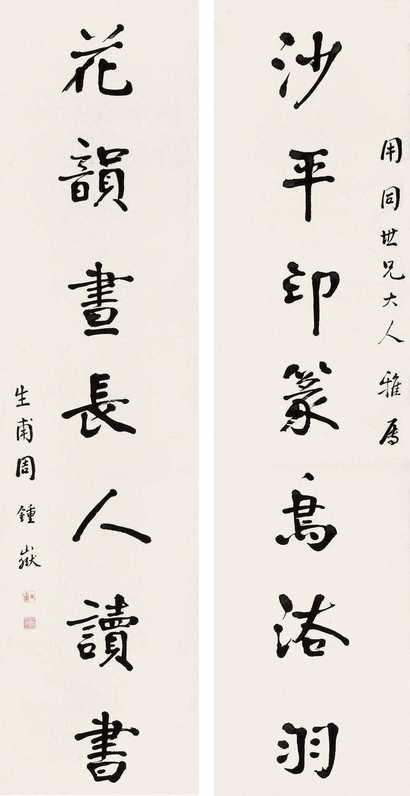 用同世兄大人雅属
沙平印篆鳥浴羽
花韻晝長人讀書
生甫周鍾嶽